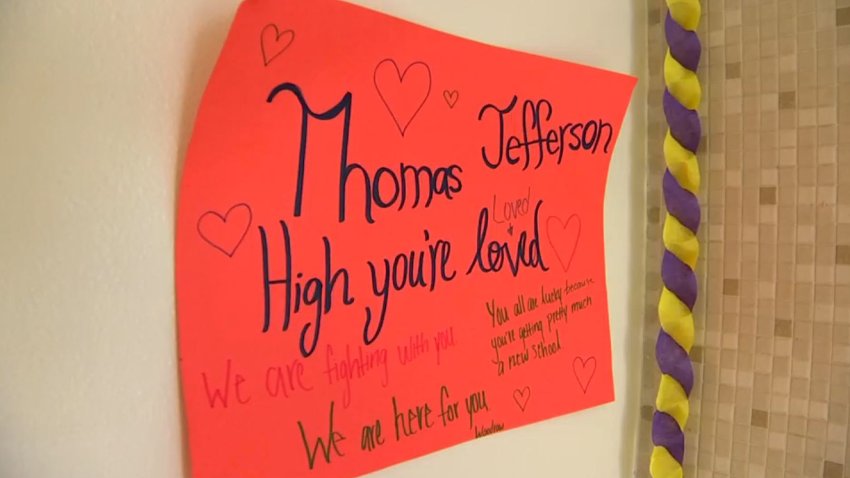 Thomas Jefferson
High you're loved
Loved
You all are lucky because
you're getting pretty much
a new school
We are fighting with you
We are here for you
Woodrow